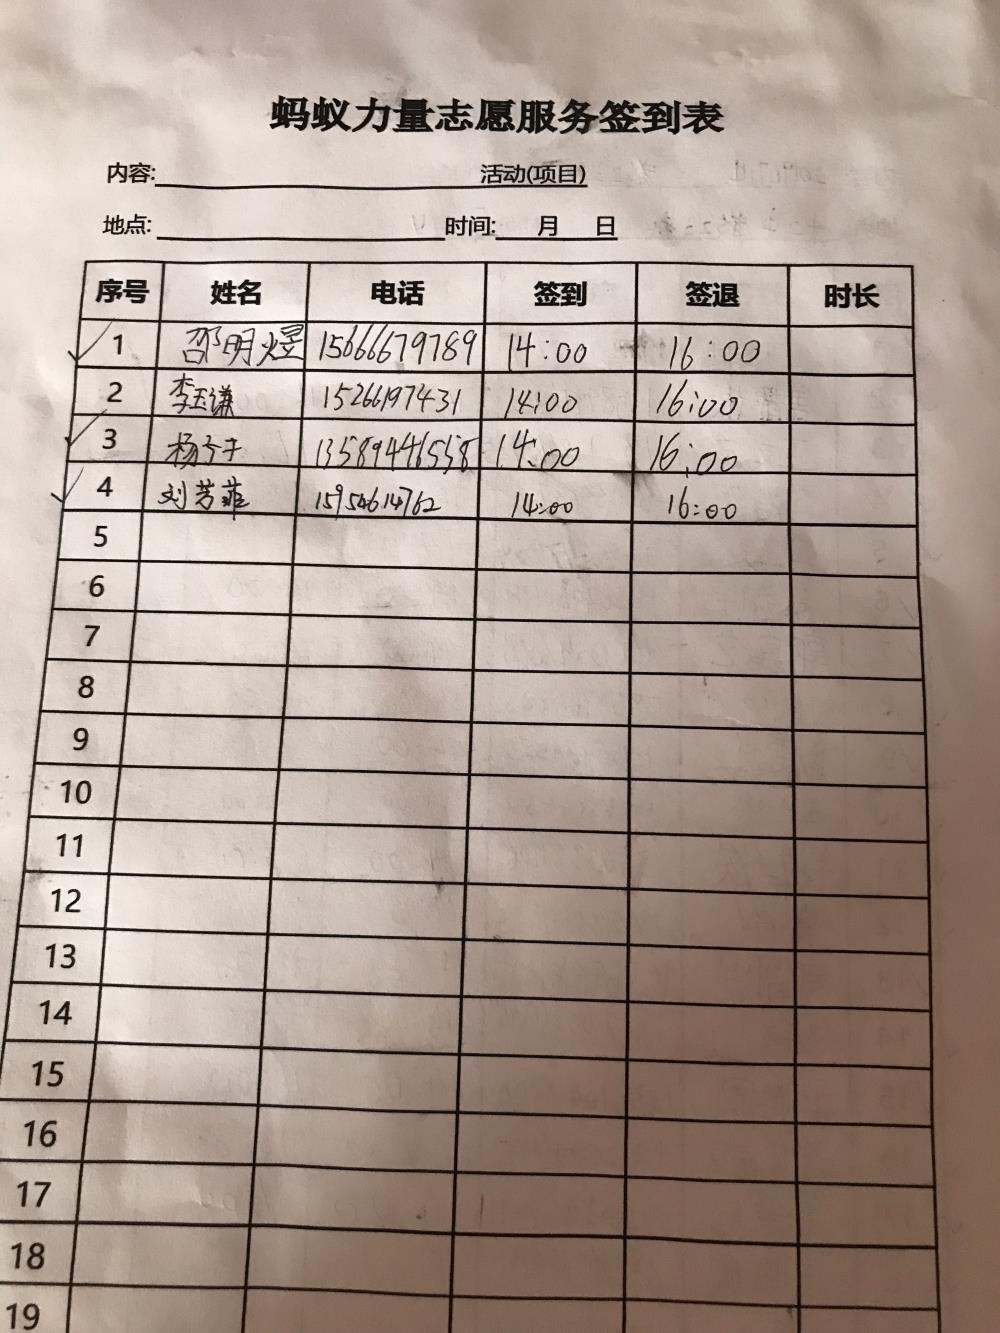 蚂蚁力量志愿服务签到表
内容: 活动(项目)
地点: 时间: 月 日
序号 姓名 电话 签到 签退 时长
1 邵明煜 15666679789 14:00 16:00
2 李玉谦 15266197431 14:00 16:00
3 杨子千 13589446558 14:00 16:00
4 刘芳菲 15954614762 14:00 16:00
5
6
7
8
9
10
11
12
13
14
15
16
17
18
19